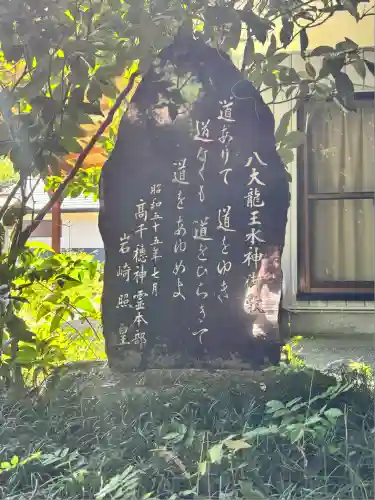 八大龍王水神御歌
道ありて 道をゆき
道なくも 道をひらきて
道をあゆめよ
昭和三十五年七月
高千穂神霊本部
岩崎照皇